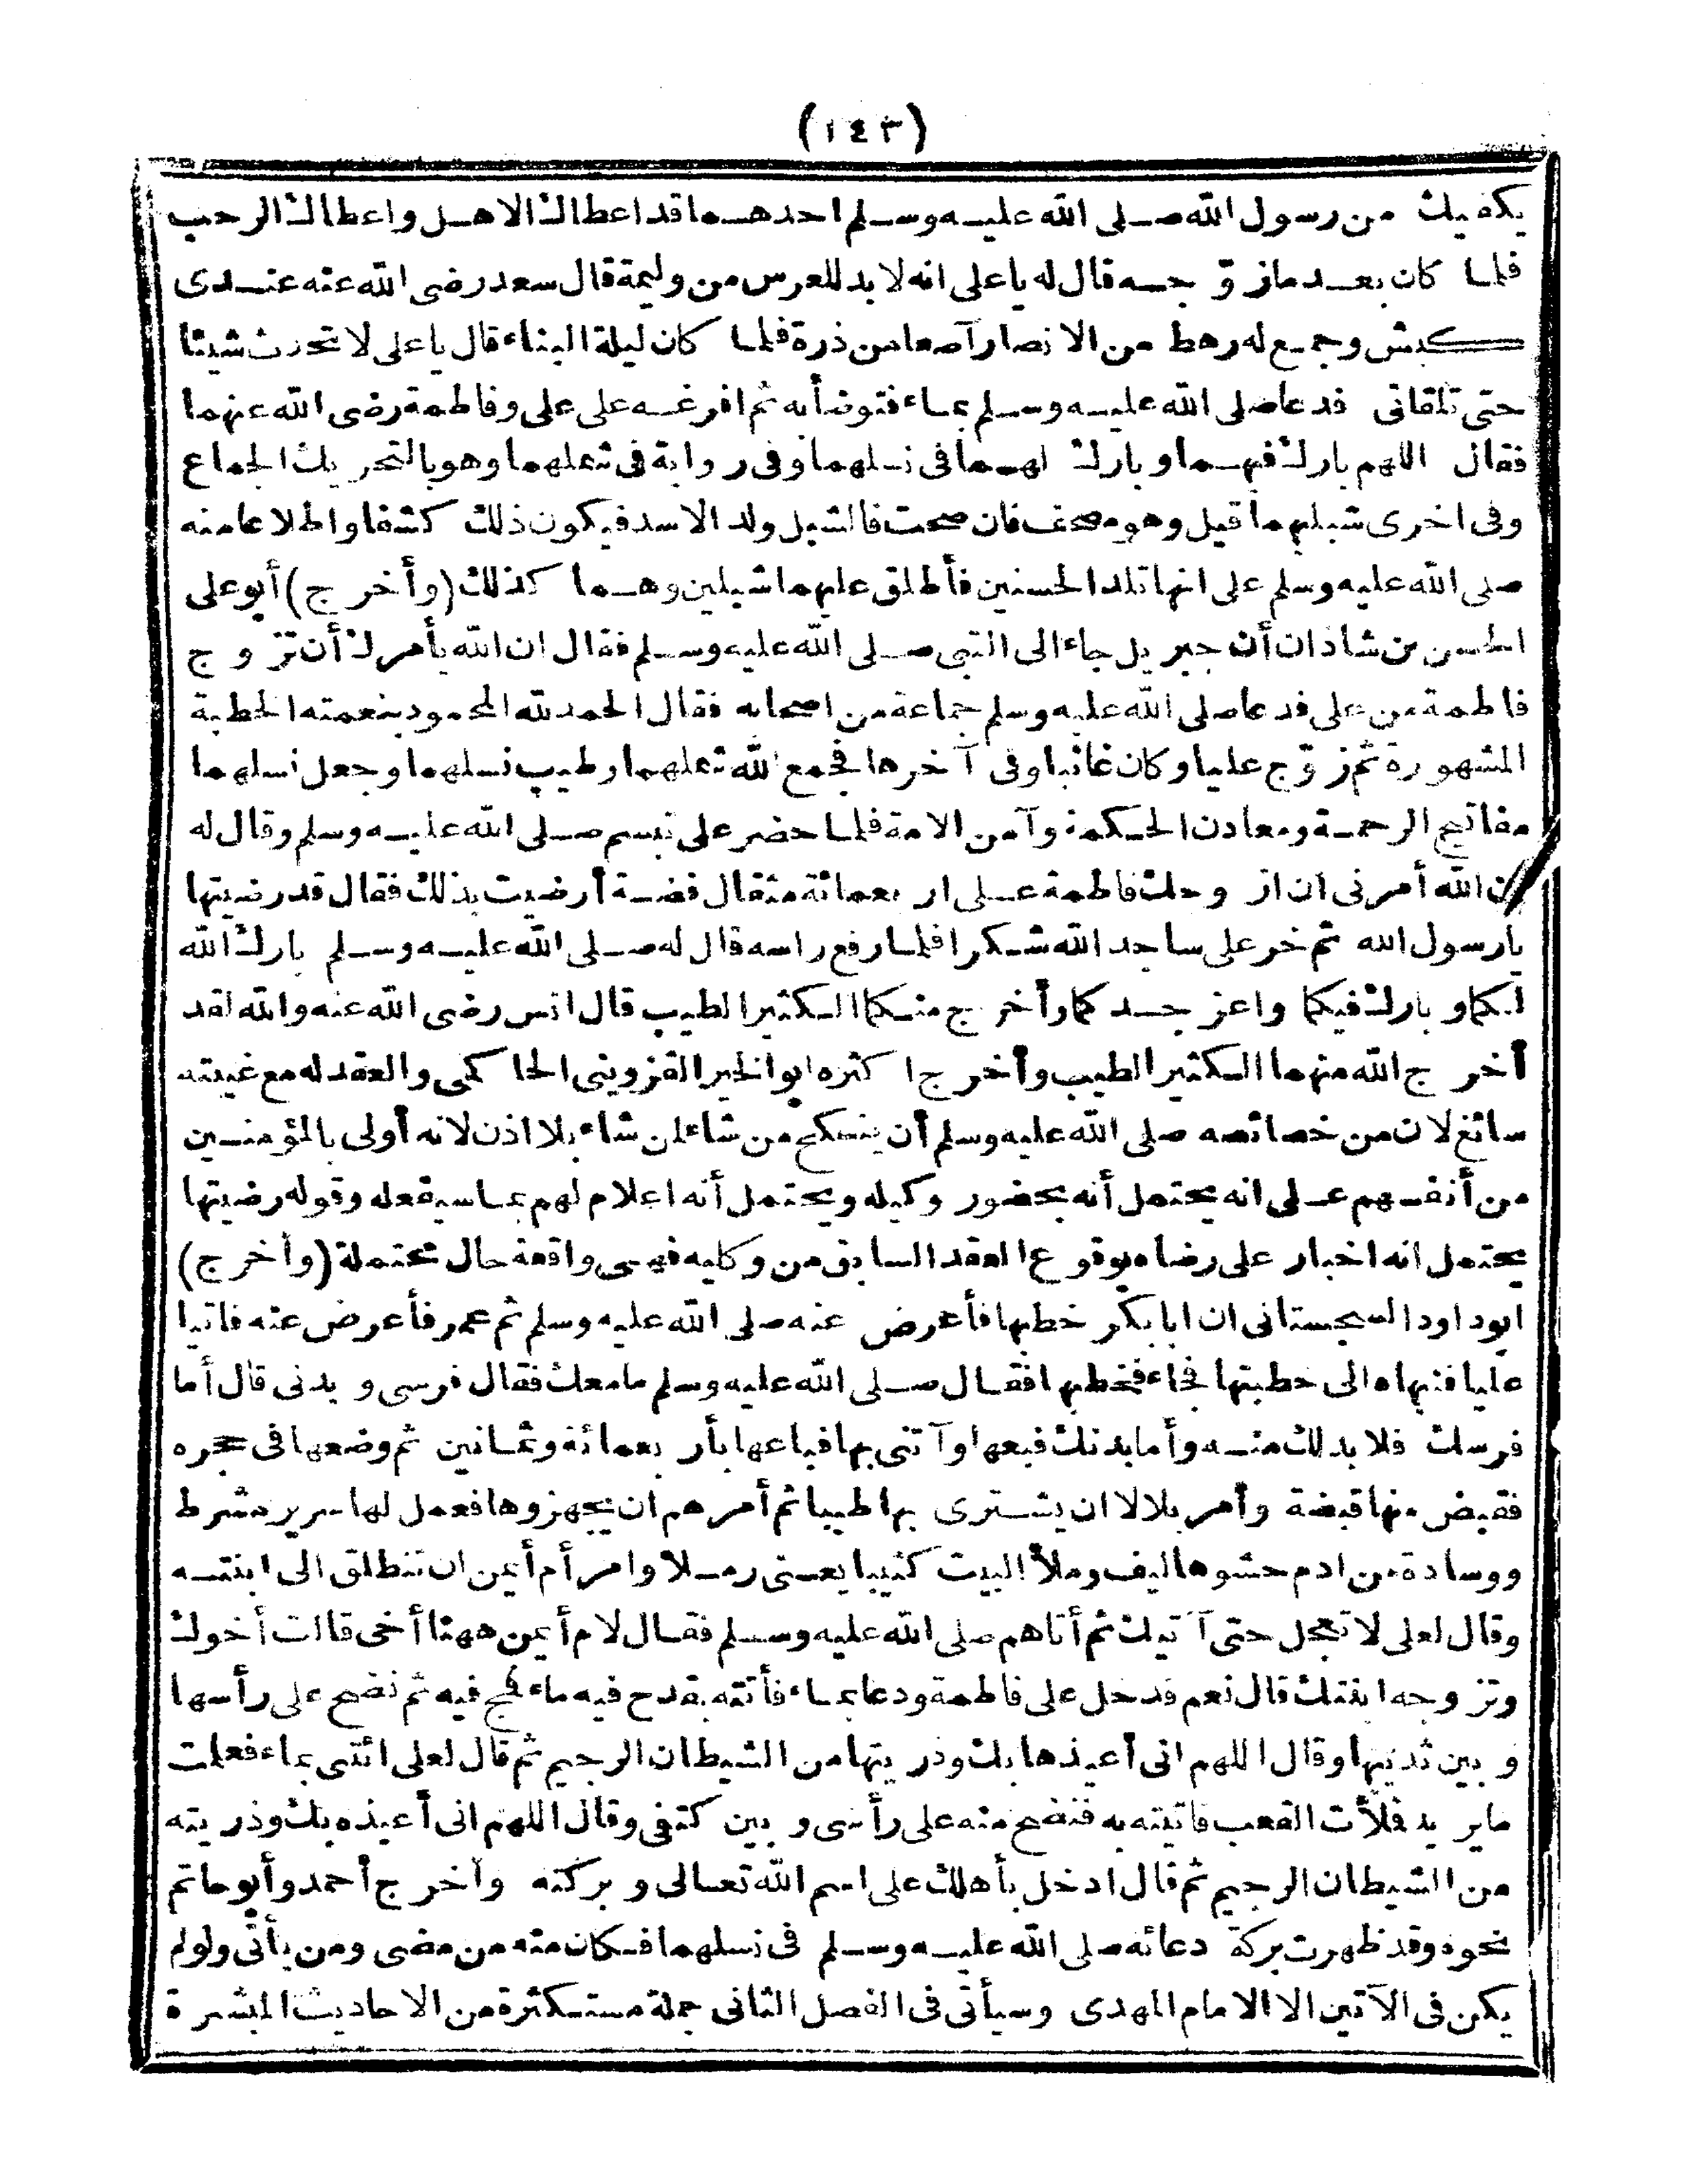 (١٤٣)
يكفيك من رسول الله صلى الله عليه وسلم احدهما قد اعطاك الاهل واعطاك الرحب
فلما كان بعد ما زوّجه قال له يا على انه لا بد للعرس من وليمة قال سعد رضى الله عنه عندى
كبش وجمع له رهط من الانصار آصعا من ذرة فلما كان ليلة البناء قال يا على لا تحدث شيئا
حتى تلقانى فدعا صلى الله عليه وسلم بماء فتوضأ به ثم افرغه على على وفاطمة رضى الله عنهما
فقال اللهم بارك فيهما وبارك لهما فى نسلهما وفى رواية فى شملهما وهو بالتحريك الجماع
وفى اخرى شبليهما قيل وهو مصحف فان صحت فالشبل ولد الاسد فيكون ذلك كشفا واطلاعا منه
صلى الله عليه وسلم على انها تلد الحسنين فأطلق عليهما شبلين وهما كذلك (وأخرج) أبو على
الحسن بن شاذان أن جبريل جاء الى النبى صلى الله عليه وسلم فقال ان الله يأمرك أن تزوج
فاطمة من على فدعا صلى الله عليه وسلم جماعة من اصحابه فقال الحمد لله المحمود بنعمته الخطبة
المشهورة ثم زوّج عليا وكان غائبا وفى آخرها فجمع الله شملهما وطيب نسلهما وجعل نسلهما
مفاتيح الرحمة ومعادن الحكمة وآمن الامة فلما حضر على تبسم صلى الله عليه وسلم وقال له
ان الله أمرنى ان ازوجك فاطمة على اربعمائة مثقال فضة أرضيت بذلك فقال قد رضيتها
يا رسول الله ثم خر على ساجد الله شكرا فلما رفع راسه قال له صلى الله عليه وسلم بارك الله
لكما وبارك فيكما واعز جدكما وأخرج منكما الكثير الطيب قال انس رضى الله عنه والله لقد
أخرج الله منهما الكثير الطيب وأخرج اكثره ابو الخير القزوينى الحاكمى والعقد له مع غيبته
سائغ لان من خصائصه صلى الله عليه وسلم أن ينكح من شاء لمن شاء بلا اذن لانه أولى بالمؤمنين
من أنفسهم على انه يحتمل أنه بحضور وكيله ويحتمل أنه اعلام لهم بما سيفعله وقوله رضيتها
يحتمل انه اخبار على رضاه بوقوع العقد السابق من وكليه فهى واقعة حال محتملة (وأخرج)
ابو داود السجستانى ان ابا بكر خطبها فأعرض عنه صلى الله عليه وسلم ثم عمر فأعرض عنه فاتيا
عليا فنبهاه الى خطبتها فجاء فخطبها فقال صلى الله عليه وسلم ما معك فقال فرسى وبدنى قال أما
فرسك فلا بد لك منه وأما بدنك فبعها وآتنى بها فباعها بأربعمائة وثمانين ثم وضعها فى حجره
فقبض منها قبضة وأمر بلالا ان يشترى بها طيبا ثم أمرهم ان يجهزوها فعمل لها سرير مشرط
ووسادة من ادم حشوها ليف وملأ البيت كثيبا يعنى رملا وامر أم أيمن ان تنطلق الى ابنته
وقال لعلى لا تعجل حتى آتيك ثم أتاهم صلى الله عليه وسلم فقال لام أيمن ههنا أخى قالت أخوك
وتزوجه ابنتك قال نعم فدخل على فاطمة ودعا بماء فأتته بقدح فيه ماء فمج فيه ثم نضح على رأسها
وبين ثدييها وقال اللهم انى أعيذها بك وذريتها من الشيطان الرجيم ثم قال لعلى ائتنى بماء فعلمت
ما يريد فملأت القعب فاتيته به فنضح منه على رأسى وبين كتفى وقال اللهم انى أعيذه بك وذريته
من الشيطان الرجيم ثم قال ادخل بأهلك على اسم الله تعالى وبركته وأخرج أحمد وأبو حاتم
نحوه وقد ظهرت بركة دعائه صلى الله عليه وسلم فى نسلهما فكان منه من مضى ومن يأتى ولو لم
يكن فى الآتين الا الامام المهدى وسيأتى فى الفصل الثانى جملة مستكثرة من الاحاديث المبشرة